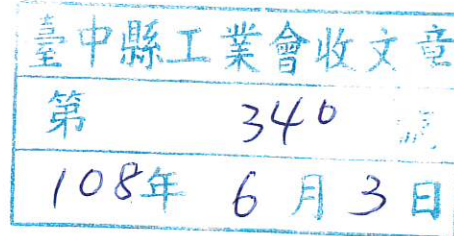 臺中縣工業會收文章
第 340 號
108年 6 月 3 日